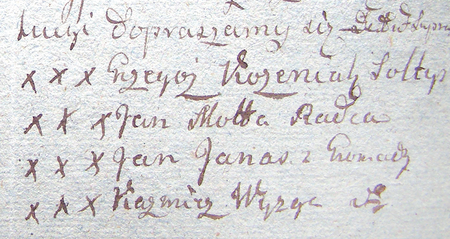 ludzi dopraszamy się
x x x Grzegoz Kozeniak Sołtys
x x x Jan Motta Radca
x x x Jan Janas z Gromady
x x x Kazmirz Wyzga